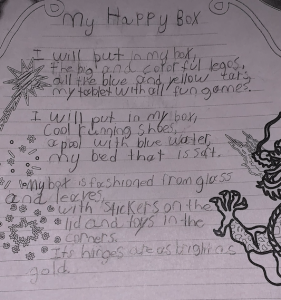 My Happy Box
I will put in my box,
the big and colorful legos,
all the blue and yellow cars,
my tablet with all fun games.
I will put in my box,
Cool running shoes,
a pool with blue water,
my bed that is soft.
my box is fashioned from glass
and leaves,
with stickers on the
lid and toys in the
corners.
Its hinges are as bright as
gold.